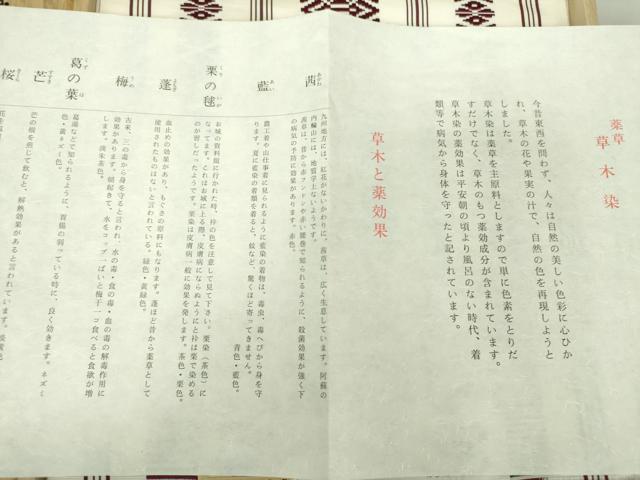 薬草
草木染
今昔東西を問わず、人々は自然の美しい色彩に心ひか
れ、草木の花や果実の汁で、自然の色を再現しようと
しました。
草木染は薬草を主原料としますので単に色素をとりだ
すだけでなく、草木のもつ薬効成分が含まれています。
草木染の薬効果は平安朝の頃より風呂のない時代、着
類等で病気から身体を守ったと記されています。
草木と薬効果
茜
あかね
九州地方には、紅花がないかわりに、茜草は、広く生息しています。阿蘇の
内輪山には、地質学上ないようです。
茜草は、昔から赤フンドシや赤い腰巻で知られるように、殺菌効果が強く下
の病気の予防に効果があります。赤色。
藍
あい
農工着や山仕事着に見られるように藍染の着物は、毒虫、毒へびから身を守
ります。夏に藍染の着類を着ると、蚊など、驚くほど寄ってきません。
青色・藍色。
栗の毬
くり いが
お城の資料館に行かれた時、裃の色を注意して見て下さい。栗染（茶色）に
なってます。これはお城に上る際、皮膚病にならぬようにと裃は栗で染める
のが習しだったようです。栗染は皮膚病一般に効果を発します。茶色・栗色。
蓬
よもぎ
血止めの効果があり、もぐさの原料にもなります。蓬ほど昔から薬草として
使用されたものはないと言われている。緑色・黄緑色。
梅
うめ
古来、三の毒から身を守ると言われ、水の毒・食の毒・血の毒の解毒作用に
効果があります。朝起きて、水をコップ一ぱいと梅干一コ食べると食欲が増
します。
葛の葉
くず は
葛湯などで知られるように、胃腸の弱っている時に、良く効きます。ネズミ
色・黄ネズミ色。
芒
すすき
芒の根を煎じて飲むと、解熱効果があると言われています。
桜
さくら